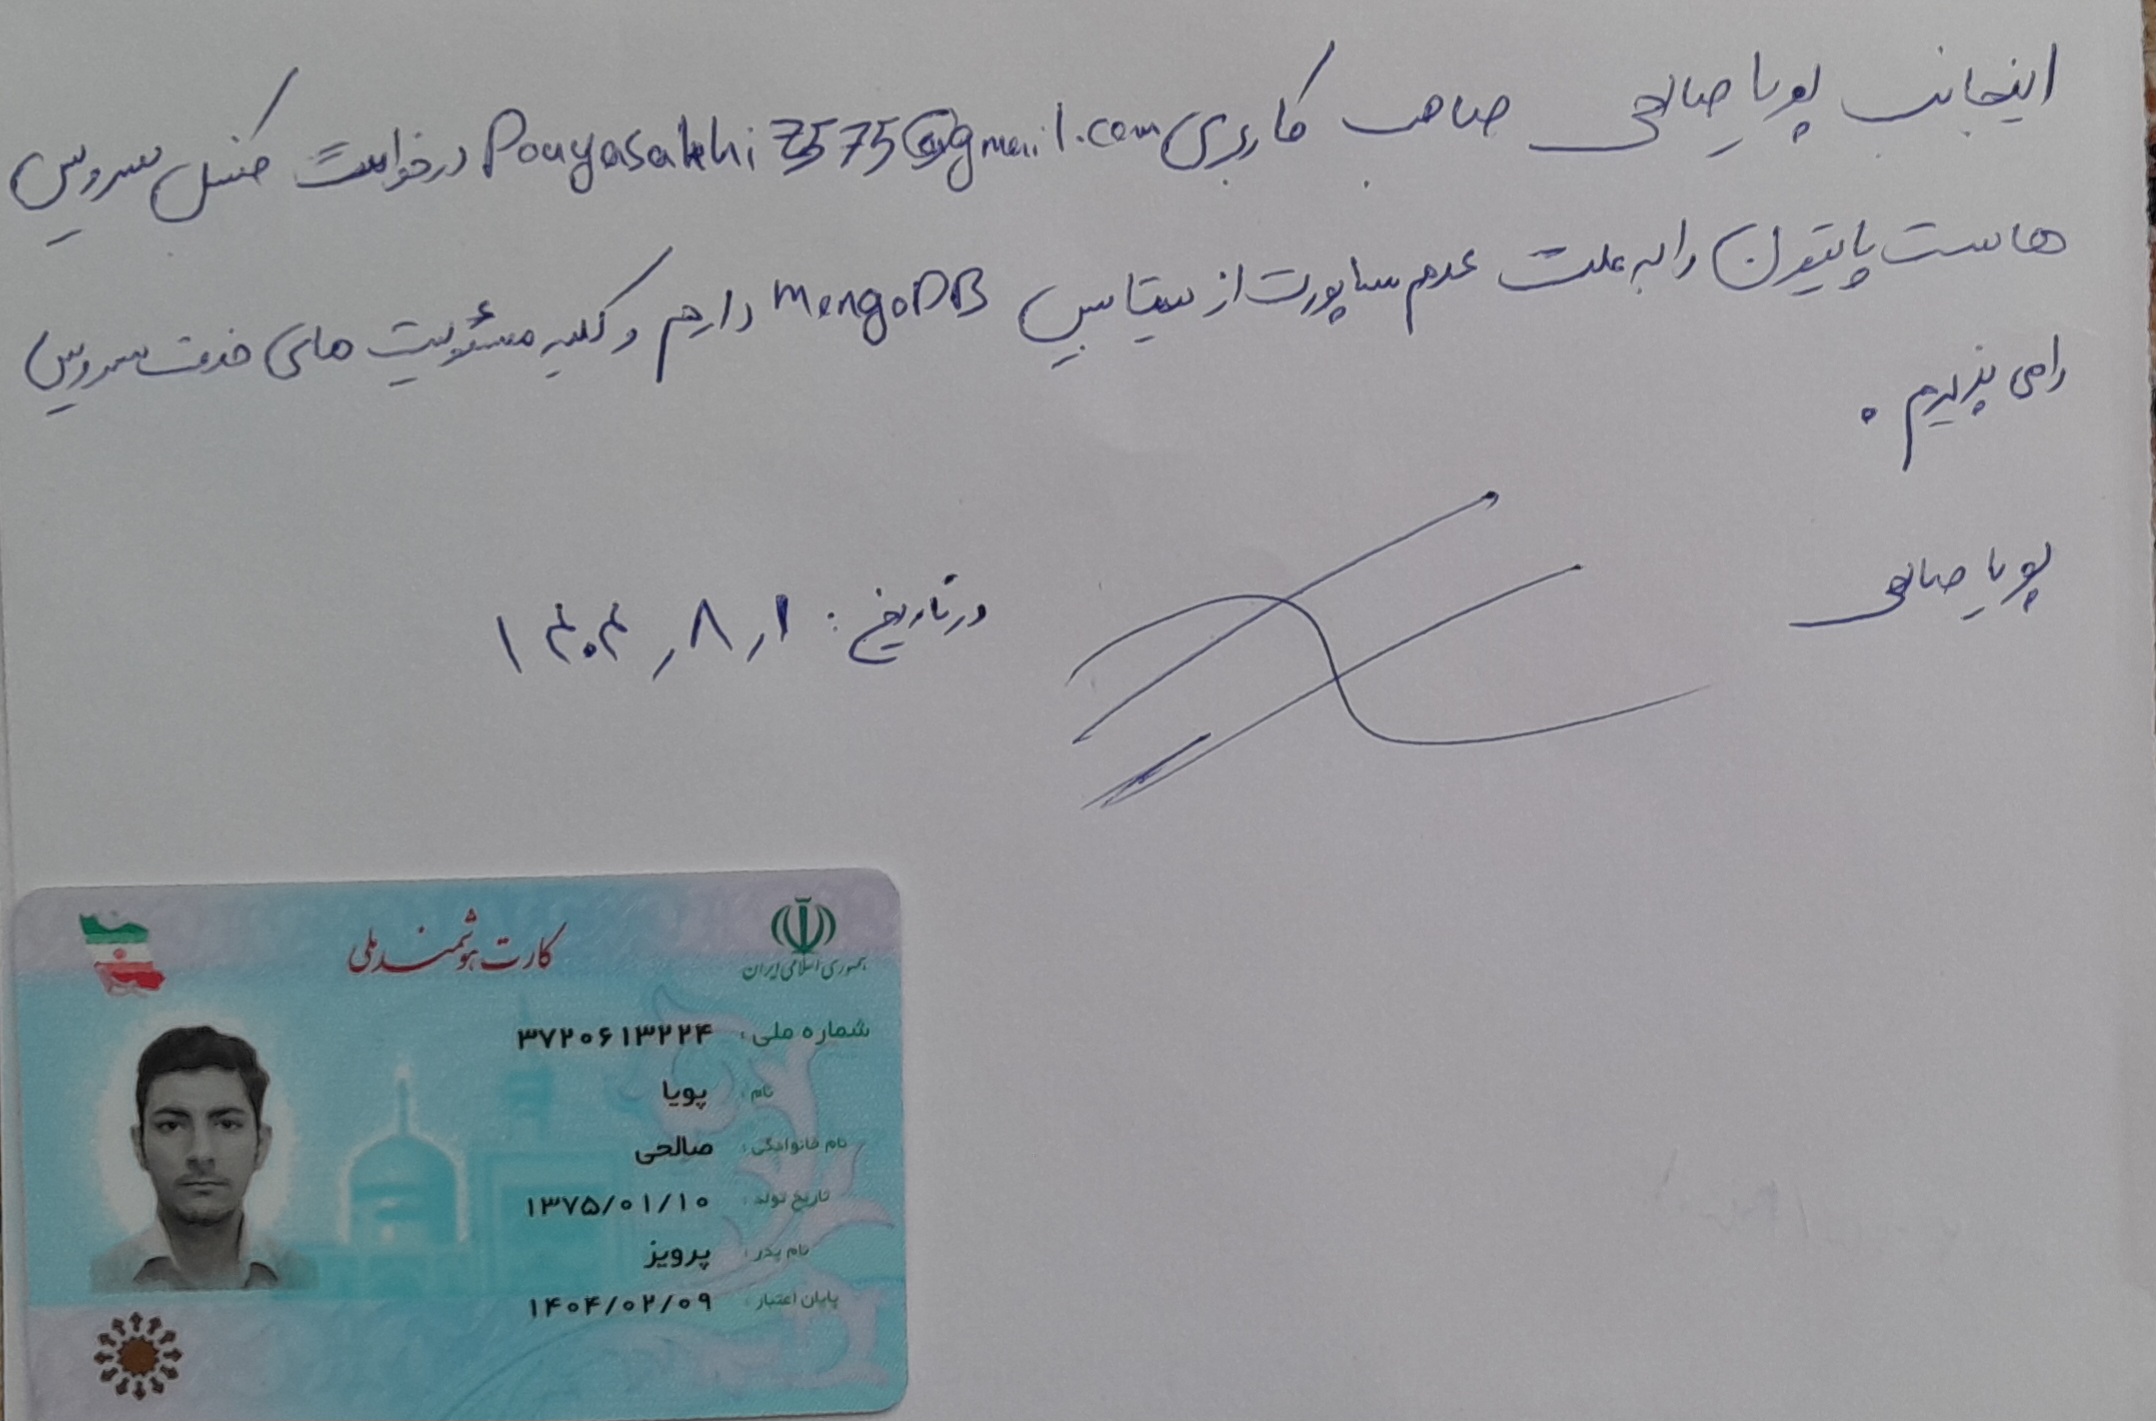 اینجانب پویا صالحی صاحب کاربری Pouyasalehi7575@gmail.com درخواست کنسل سرویس
هاست پایتون را به علت عدم ساپورت از دیتابیس MongoDB دارم و کلیه مسئولیت های حذف سرویس
را می پذیرم .
پویا صالحی
در تاریخ : ۱ر۸ر۱۴۰۴
جمهوری اسلامی ایران
کارت هوشمند ملی
شماره ملی : ۳۷۲۰۶۱۳۲۲۴
نام : پویا
نام خانوادگی : صالحی
تاریخ تولد : ۱۳۷۵/۰۱/۱۰
نام پدر : پرویز
پایان اعتبار : ۱۴۰۴/۰۲/۰۹